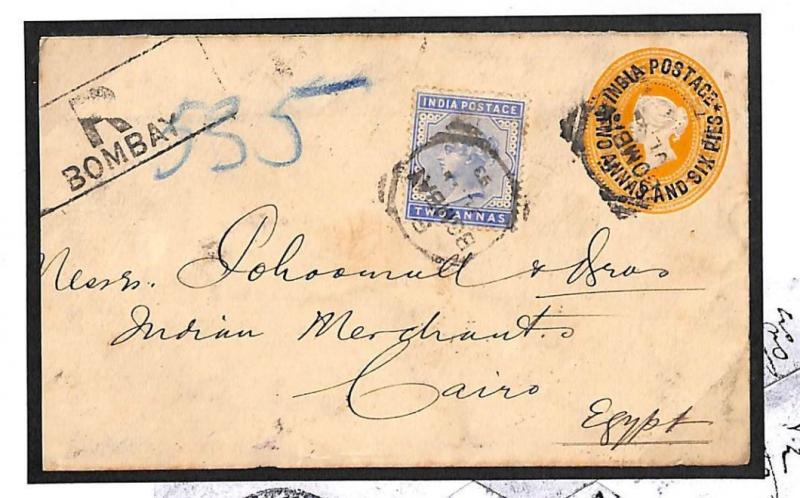 R
BOMBAY
555
INDIA POSTAGE
TWO ANNAS
INDIA POSTAGE
TWO ANNAS AND SIX PIES
BOMBAY
Messrs. Pohoomull & Bros
Indian Merchants
Cairo
Egypt